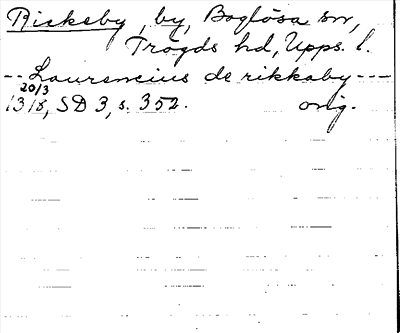 Rickeby, by, Boglösa sn,
Trögds hd, Upps. l.
-- Laurencius de rikkaby ---
20/3
1318, SD 3, s. 352. orig.